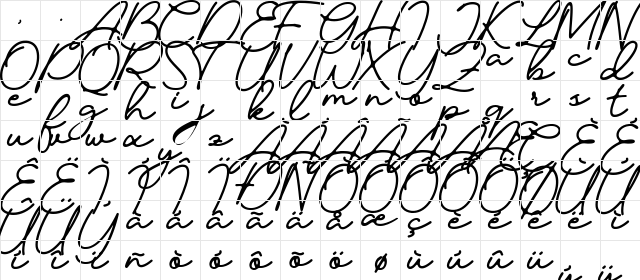 ' . A B C D E F G H I J K L M N
O P Q R S T U V W X Y Z a b c d
e f g h i j k l m n o p q r s t
u v w x y z À Á Â Ã Ä Å Æ Ç È É
Ê Ë Ì Í Î Ï Ð Ñ Ò Ó Ô Õ Ö Ø Ù Ú
Û Ü Ý à á â ã ä å æ ç è é ê ë ì
í î ï ñ ò ó ô õ ö ø ù ú û ü ý ÿ